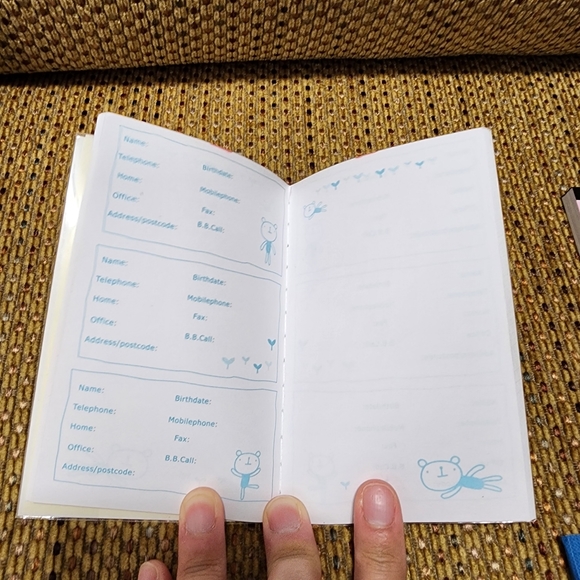 Name:
Telephone: Birthdate:
Home: Mobilephone:
Office: Fax:
Address/postcode: B.B.Call:
Name:
Telephone: Birthdate:
Home: Mobilephone:
Office: Fax:
Address/postcode: B.B.Call:
Name:
Telephone: Birthdate:
Home: Mobilephone:
Office: Fax:
Address/postcode: B.B.Call: